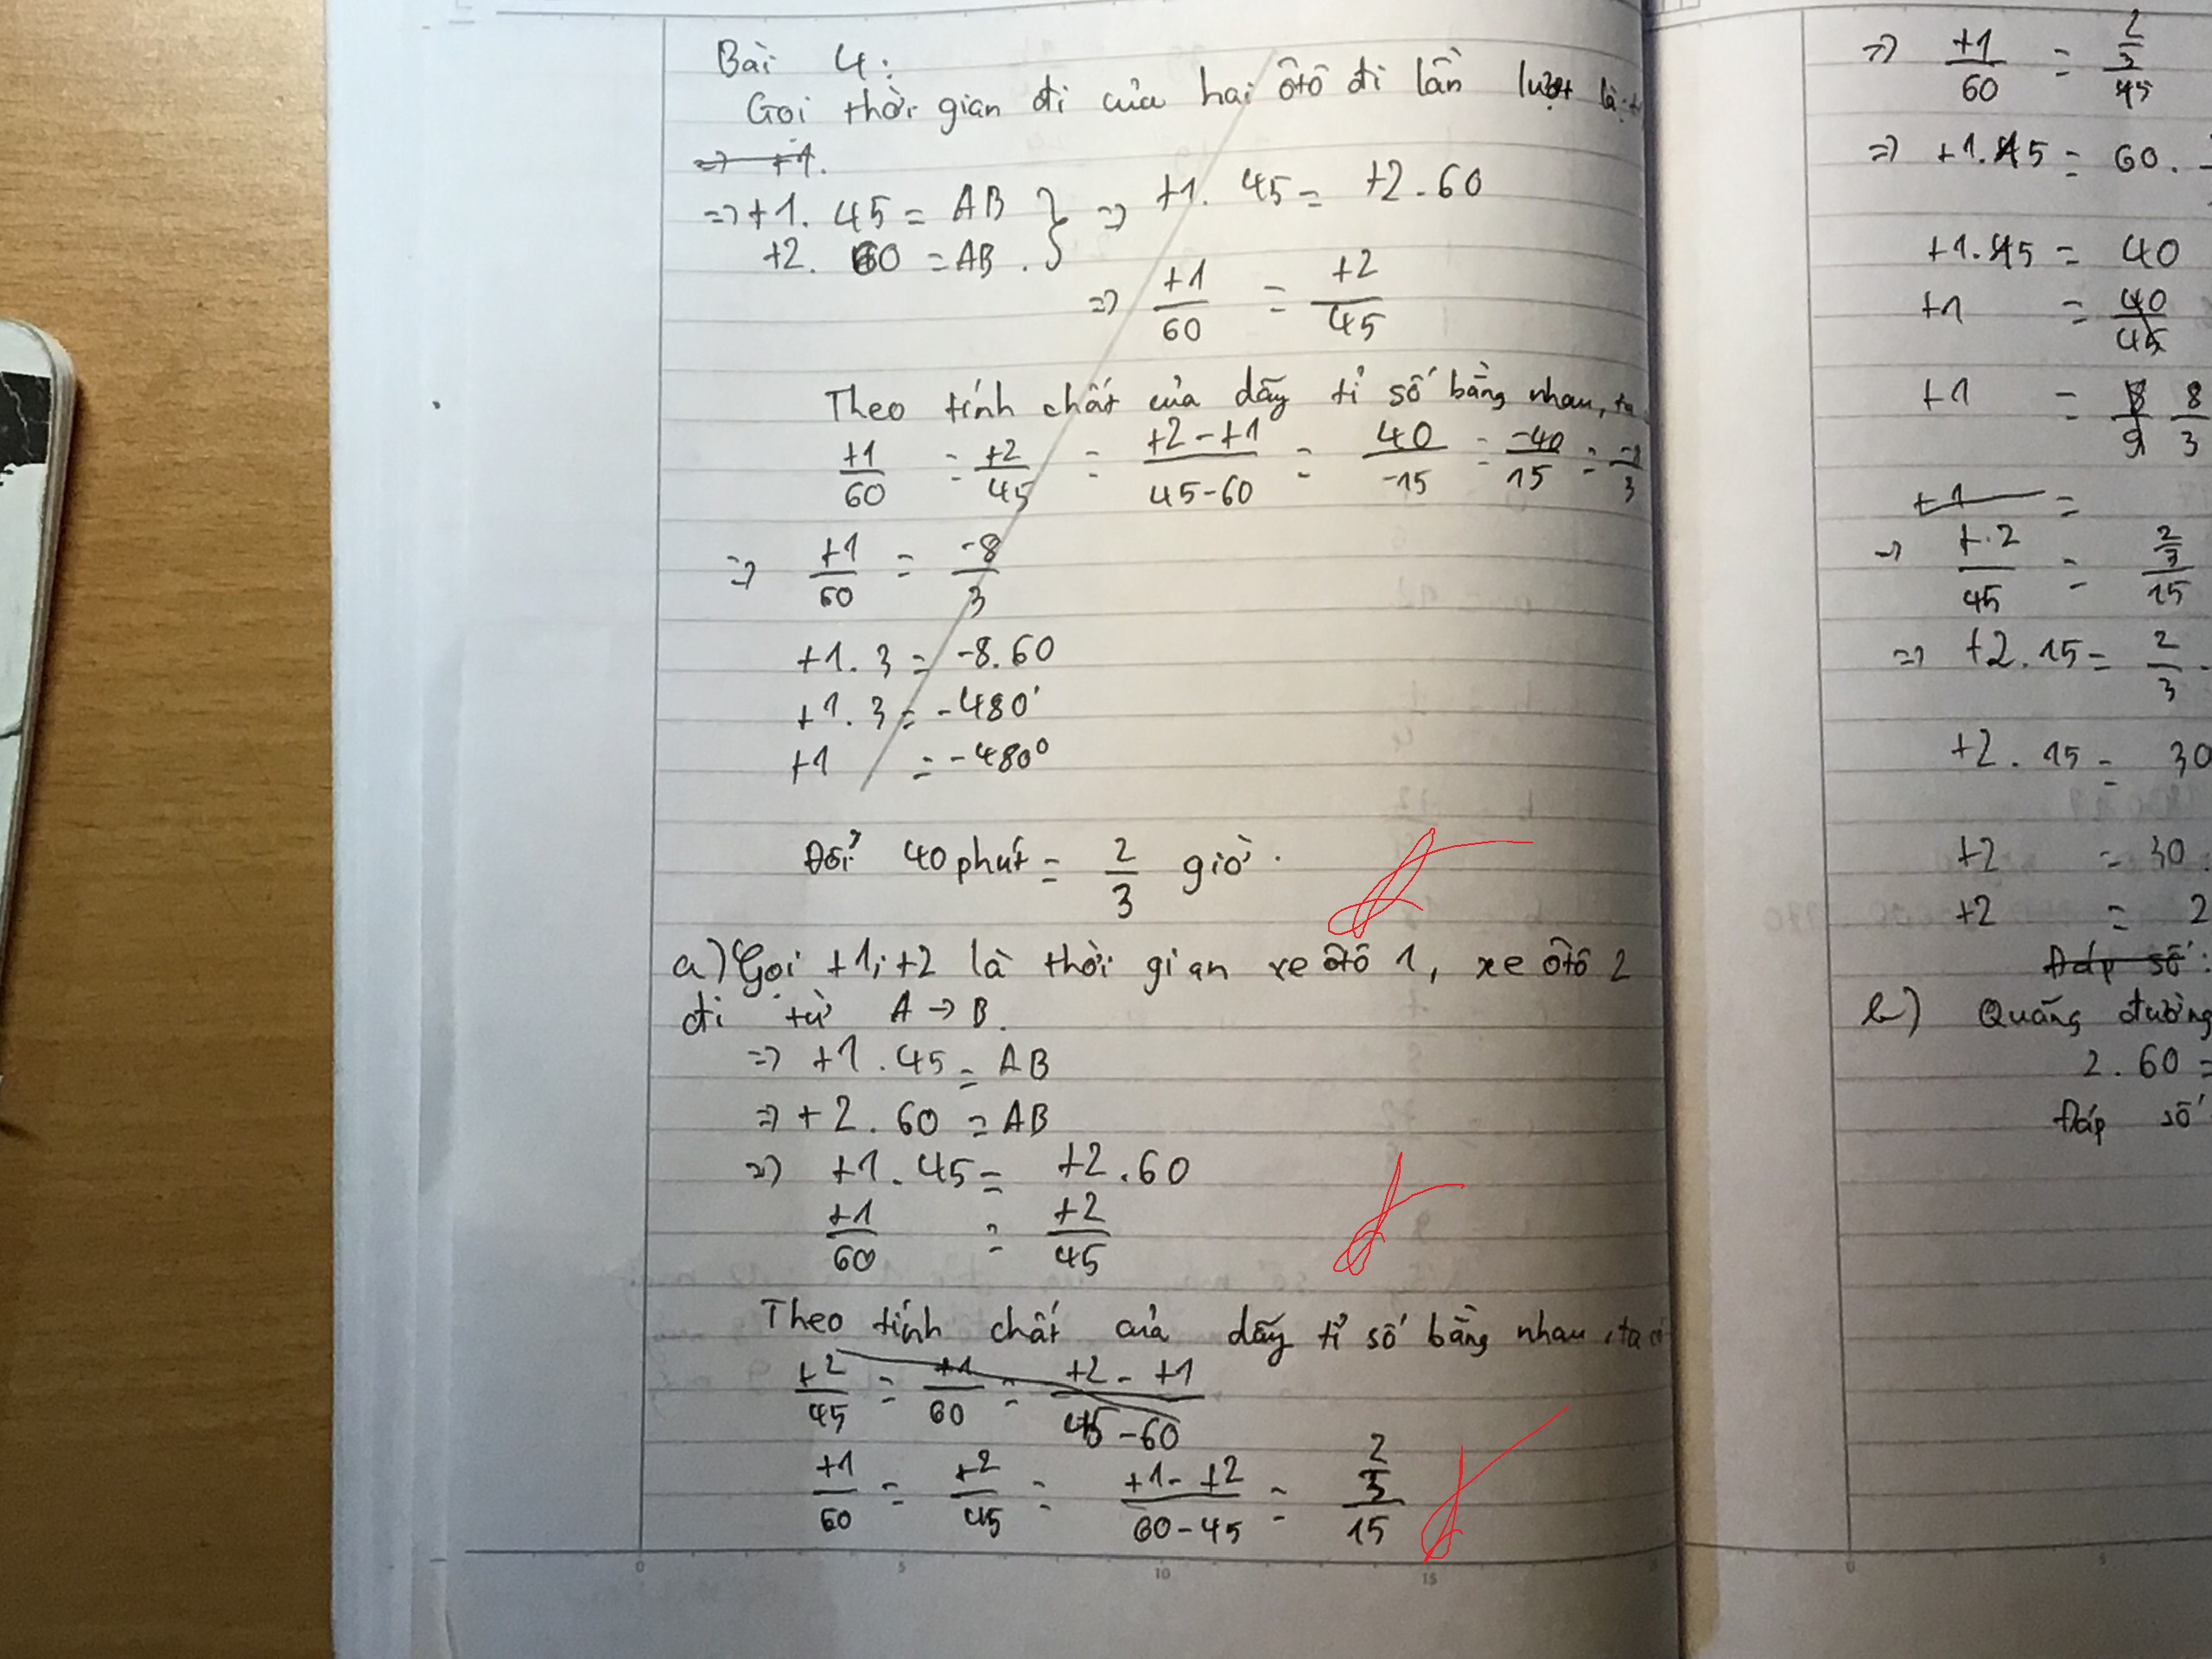 Bài 4:
Gọi thời gian đi của hai ôtô đi lần lượt là t
=> t1.
=> t1. 45 = AB } => t1. 45 = t2. 60
t2. 60 = AB.
=> t1/60 = t2/45
Theo tính chất của dãy tỉ số bằng nhau, ta
t1/60 = t2/45 = t2 - t1/45-60 = 40/-15 = -40/15 = -8/3
=> t1/60 = -8/3
t1. 3 = -8.60
t1. 3 = -480
t1 = -480
Đổi 40 phút = 2/3 giờ.
a) Gọi t1; t2 là thời gian xe ôtô 1, xe ôtô 2
đi từ A → B.
=> t1. 45 = AB
=> t2. 60 = AB
=> t1. 45 = t2. 60
t1/60 = t2/45
Theo tính chất của dãy tỉ số bằng nhau, ta có
t2/45 = t1/60 = t2 - t1/45-60
t1/60 = t2/45 = t1 - t2/60-45 = 2/3/15
0 5 10 15
=> t1/60 = 2/3/45
=> t1.15 = 60.
t1.15 = 40
t1 = 40/45
t1 = 8/3
t1 =
=> t2/45 = 2/3/15
=> t2.15 = 2/3.
t2. 15 = 30
t2 = 30:
t2 = 2
Đáp số:
b) Quãng đường
2. 60 =
Đáp số
0 5